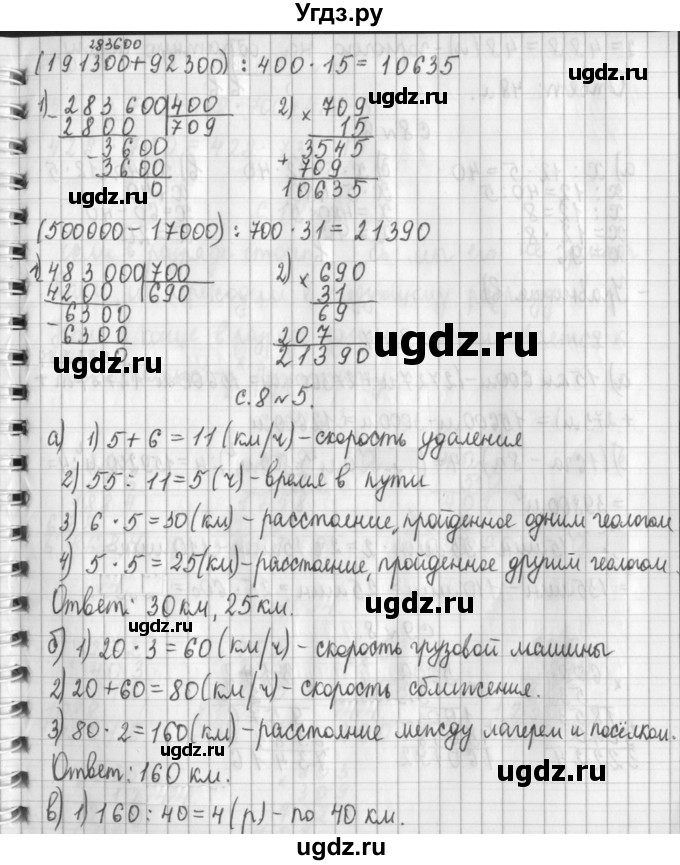 Угдз.ру
283600
(191300+92300) : 400 · 15 = 10635
ugdz.ru
1) 283600 | 400   2) × 709
2800 | 709   15
- 3600   3545
3600   + 709
0   10635
ugdz.ru ugdz.ru
(500000 - 17000) : 700 · 31 = 21390
1) 483000 | 700   2) × 690
4200 | 690   31
- 6300   69
6300   207
0   21390
ugdz.ru ugdz.ru
с. 8 № 5.
а) 1) 5 + 6 = 11 (км/ч) - скорость удаления
2) 55 : 11 = 5 (ч) - время в пути
3) 6 · 5 = 30 (км) - расстояние, пройденное одним геологом
4) 5 · 5 = 25 (км) - расстояние, пройденное другим геологом.
Ответ: 30 км, 25 км.
ugdz.ru ugdz.ru
б) 1) 20 · 3 = 60 (км/ч) - скорость грузовой машины
2) 20 + 60 = 80 (км/ч) - скорость сближения.
3) 80 · 2 = 160 (км) - расстояние между лагерем и посёлком.
ugdz.ru
Ответ: 160 км.
ugdz.ru
в) 1) 160 : 40 = 4 (р) - по 40 км.
ugdz.ru